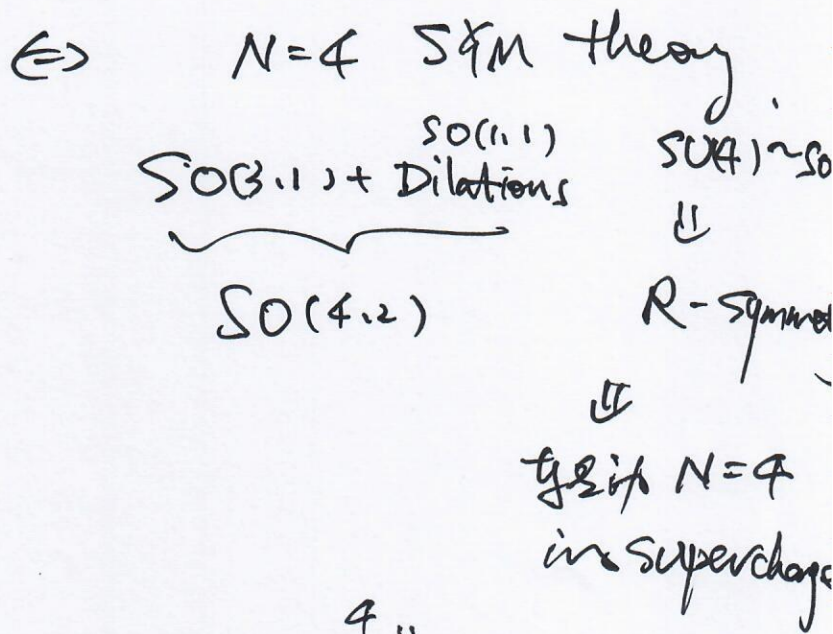 ⇔ N=4 SYM theory
SO(1,1) SU(4)~SO
SO(3,1)+ Dilations ⇓
SO(4,2) R-Symmet
⇓
N=4
in supercharge
4